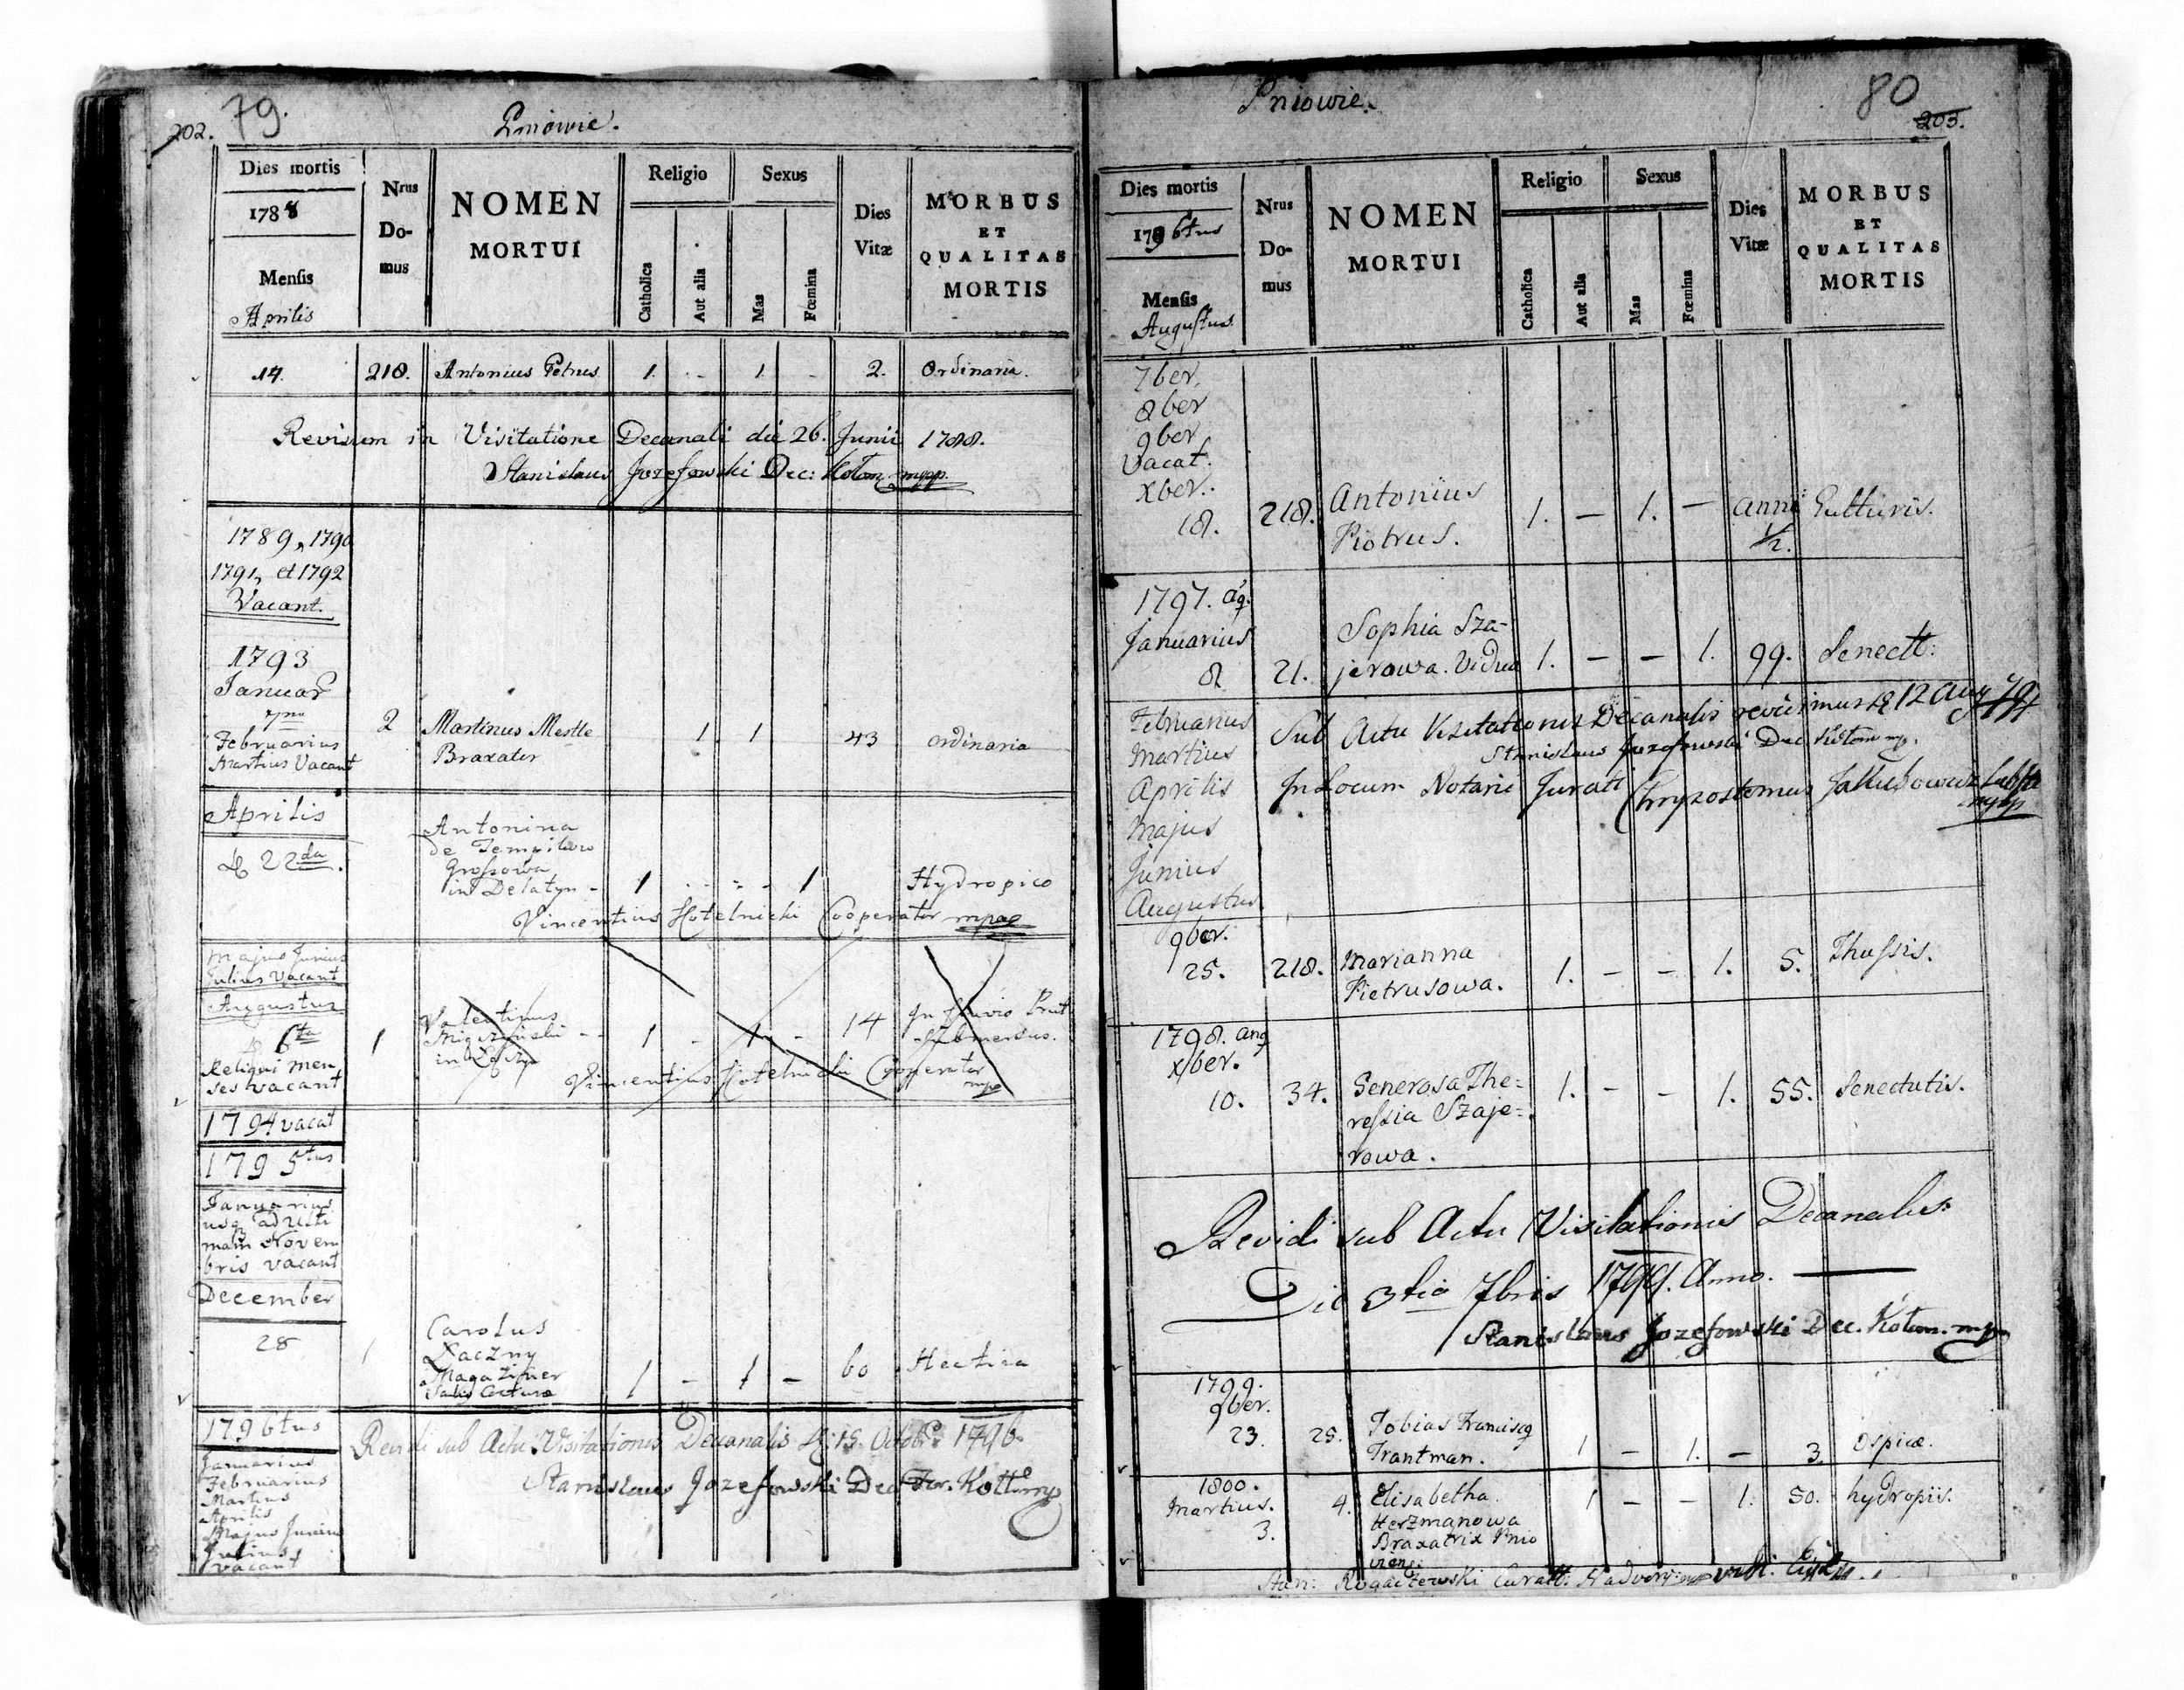 202. 79.
Pniowie.
Dies mortis
1788
Mensis
Aprilis
Nrus
Do-
mus
NOMEN
MORTUI
Religio
Catholica
Aut alia
Sexus
Mas
Fœmina
Dies
Vitæ
MORBUS
ET
QUALITAS
MORTIS
14. 218. Antonius Petrus 1. - 1. - 2. Ordinaria.
Revisum in Visitatione Decanali die 26. Junii 1788.
Stanislaus Jozefowski Dec: Kolom mpp.
1789, 1790
1791, et 1792
Vacant.
1793
Januar
Februarius
Martius Vacant
2 Martinus Mestle 1 1 43 ordinaria
Braxator
Aprilis
22da.
Antonina
de
Grossowa
in Delatyn - 1 - - - 1 Hydropico
Vincentius Hotelnicki Cooperator mpae
Majus Junius
Julius Vacant
Augustus
6ta
Reliqui men
ses vacant
1 Valentinus
in
1 - 1 - 14 In fluvio Prut
Submersus.
Vincentius Hotelnicki Cooperator
mp
1794 vacat
1795tus
Januarius
usq ad ulti
mam Novem
bris vacant
December
28 1 Carolus
Laczny
Magaziner
1 - 1 - 60 Hectica
1796tus
Januarius
Februarius
Martius
Aprilis
Majus Junius
Julius
vacant
Revidi sub Actu Visitationis Decanalis 15. Octob. 1796.
Stanislaus Jozefowski Dec. For. Kol mp
Pniowie.
80
203.
Dies mortis
1796tus
Mensis
Augustus
Nrus
Do-
mus
NOMEN
MORTUI
Religio
Catholica
Aut alia
Sexus
Mas
Fœmina
Dies
Vitæ
MORBUS
ET
QUALITAS
MORTIS
7ber.
8ber
9ber
Vacat.
xber.
18. 218. Antonius 1. — 1. — anni Gutturis.
Piotrus. 1/2.
1797.
Januarius
8 21. Sophia Sza-
jerowa. Vidua 1. — — 1. 99. Senectt:
Februarius
Martius
Aprilis
Majus
Junius
Augustus
Sub Actu Visitationis Decanalis revisimus 12 Aug 797
Stanislaus Jozefowski Dec. Kolom mp.
In Locum Notarii Jurati Chryzostomus
mpp
9ber.
25. 218. Marianna 1. — — 1. 5. Thussis.
Pietrusowa.
1798.
xber.
10. 34. Generosa The= 1. — — 1. 55. Senectutis.
ressia Szaje=
rowa.
Revidi sub Actu Visitationis Decanalis
Die 3tia 7bris 1799. Anno. —
Stanislaus Jozefowski Dec. Kolom. mp
1799.
9ber.
23. 25. Tobias Francisq
Trantman. 1 — 1. — 3. Ospice.
1800.
Martius.
3. 4. Elisabetha 1 — — 1. 50. hydropis.
Herzmanowa
Braxatrix Pnio
viens:
Stan: Rogaczewski Curatt: Nadvorn: